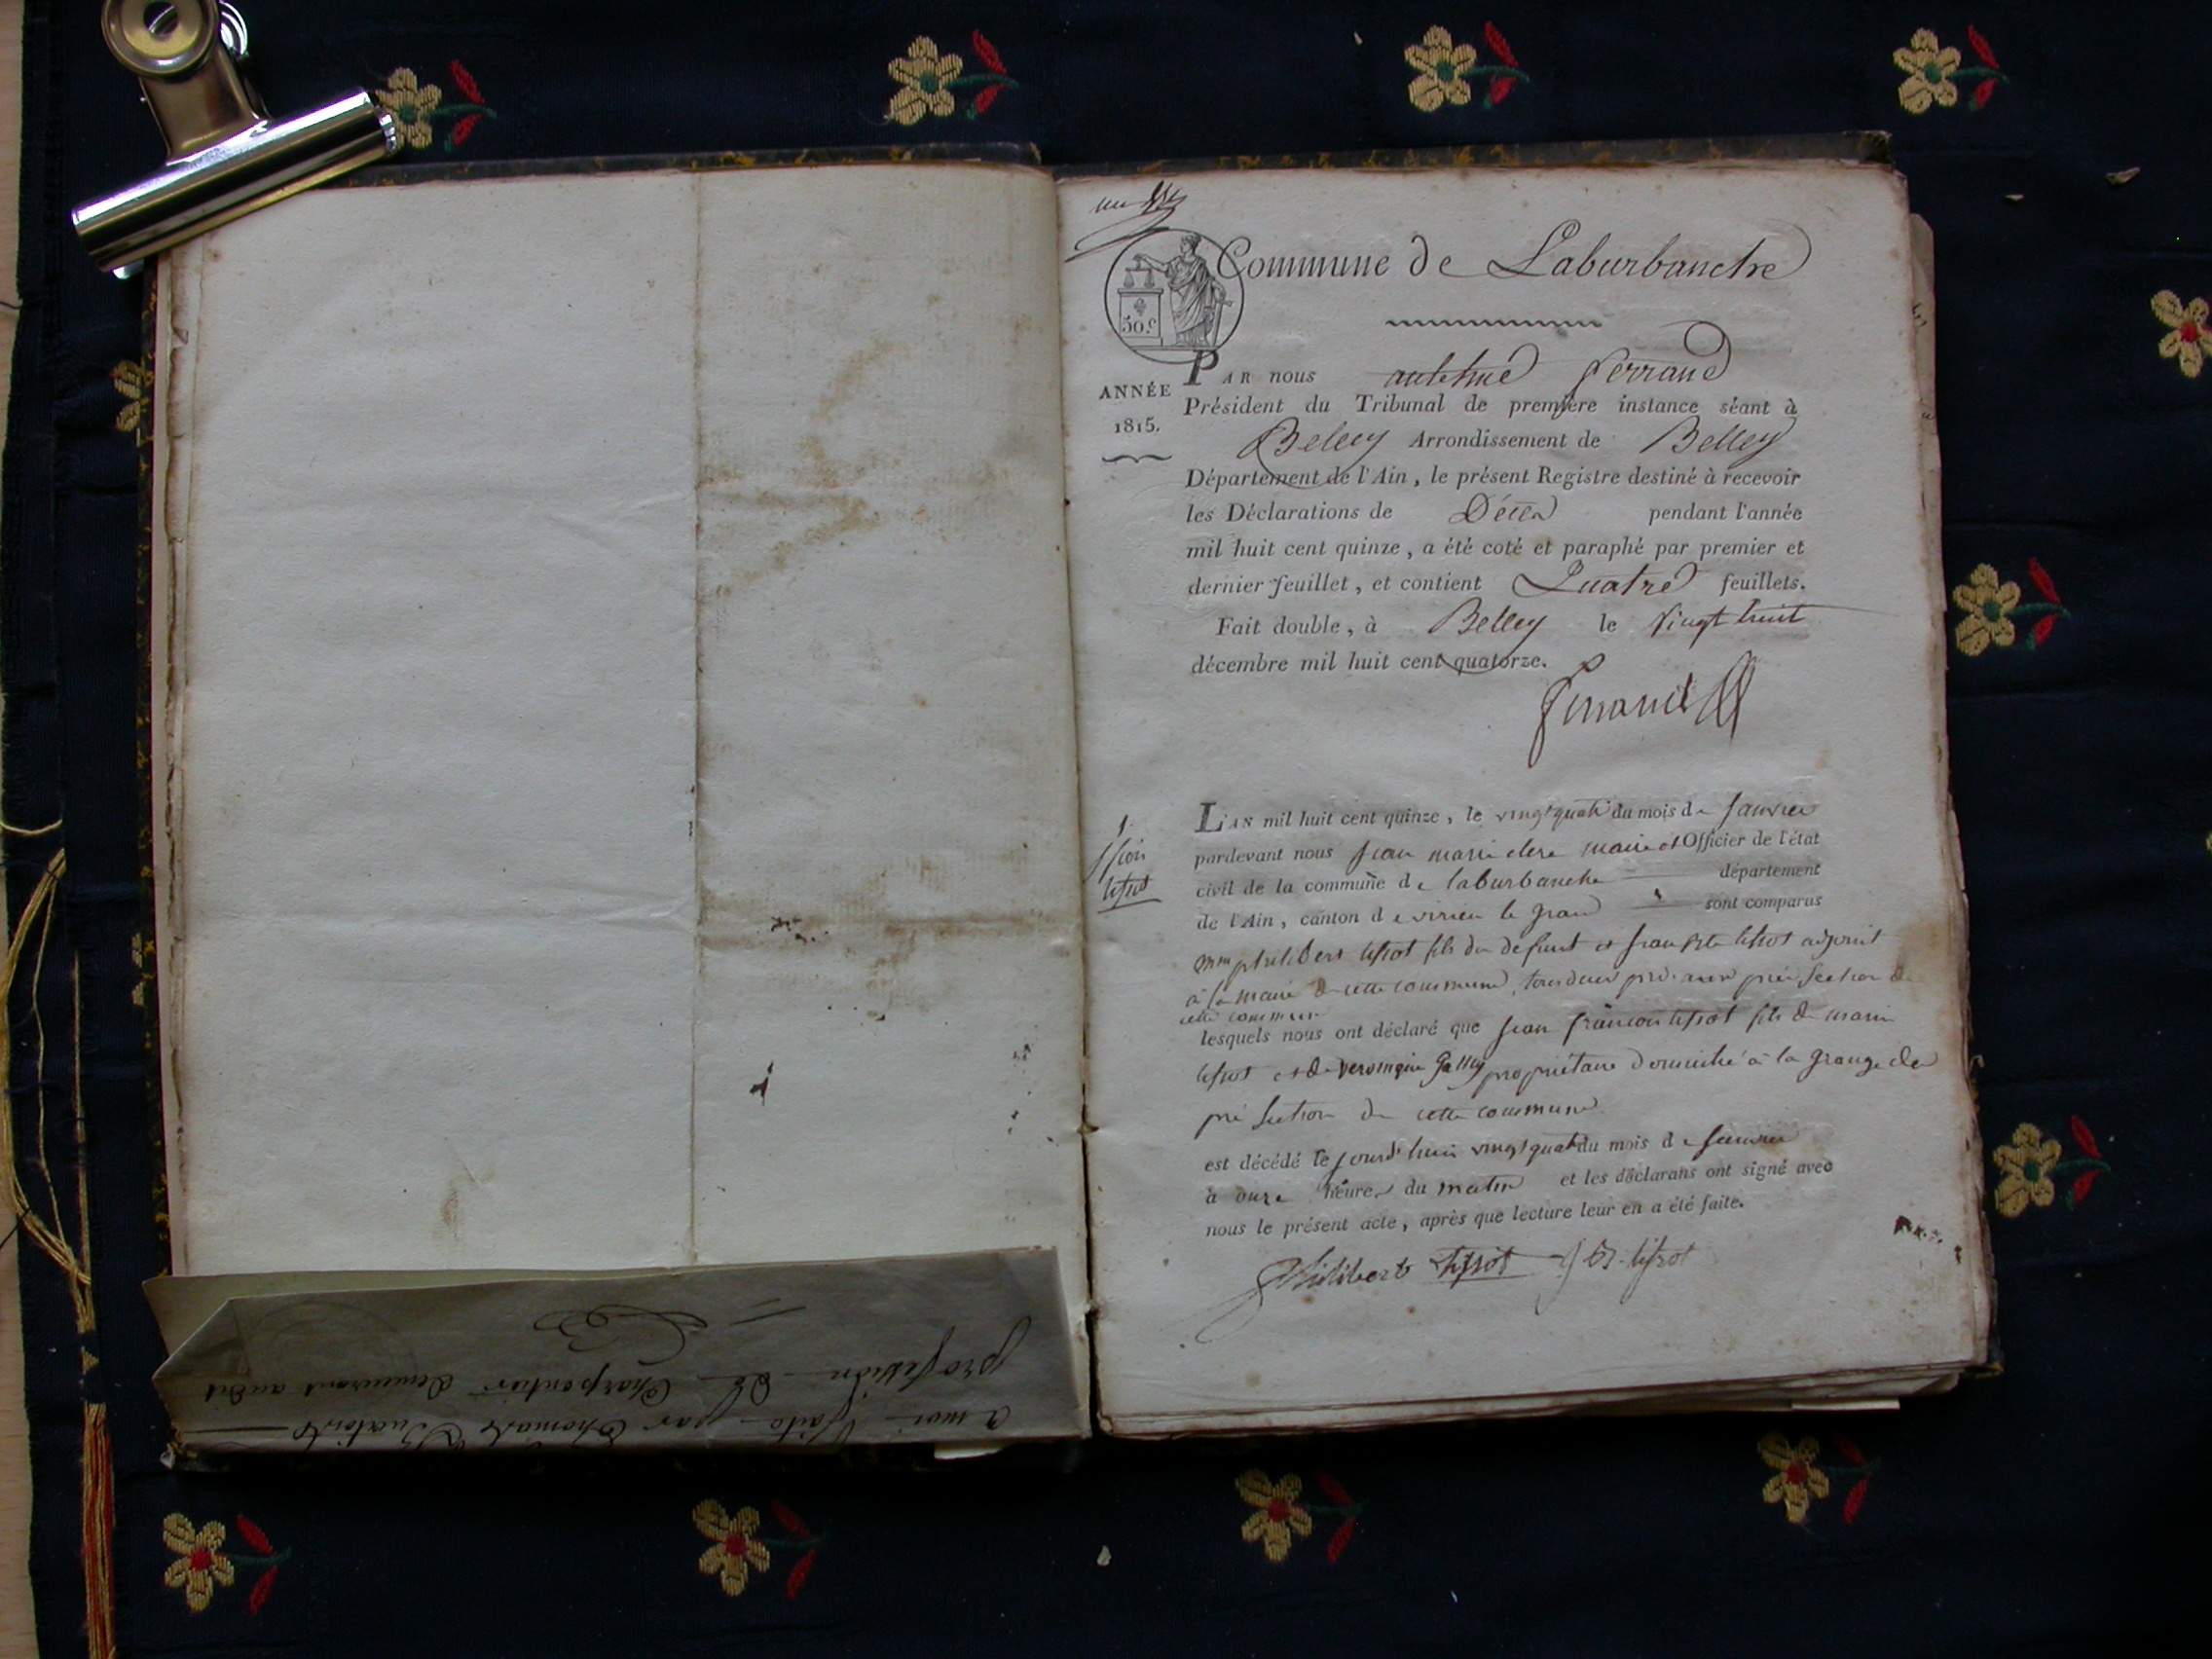 Commune de Laburbanche
50.c
ANNÉE
1815.
PAR nous anthelme ferrand
Président du Tribunal de première instance séant à
Belley Arrondissement de Belley
Département de l'Ain, le présent Registre destiné à recevoir
les Déclarations de Décès pendant l'année
mil huit cent quinze, a été coté et paraphé par premier et
dernier feuillet, et contient Quatre feuillets.
Fait double, à Belley le vingt huit
décembre mil huit cent quatorze.
ferrand
1
tissot
L'AN mil huit cent quinze, le vingt quatre du mois de Janvier
pardevant nous jean marie maire et Officier de l'état
civil de la commune de laburbanche département
de l'Ain, canton de virieu le grand sont comparus
philibert tissot fils du defunt et tissot adjoint
à la mairie de cette commune, tous deux section de
cette commune
lesquels nous ont déclaré que jean françois tissot fils de marin
tissot et de veronique propriétaire domicilié à la grange de
pré section de cette commune
est décédé le jourd'hui vingt quatre du mois de janvier
à onze heures du matin et les déclarans ont signé avec
nous le présent acte, après que lecture leur en a été faite.
Philibert tissot tissot
a moi faite par thomas
profession de Charpentier demeurant audit